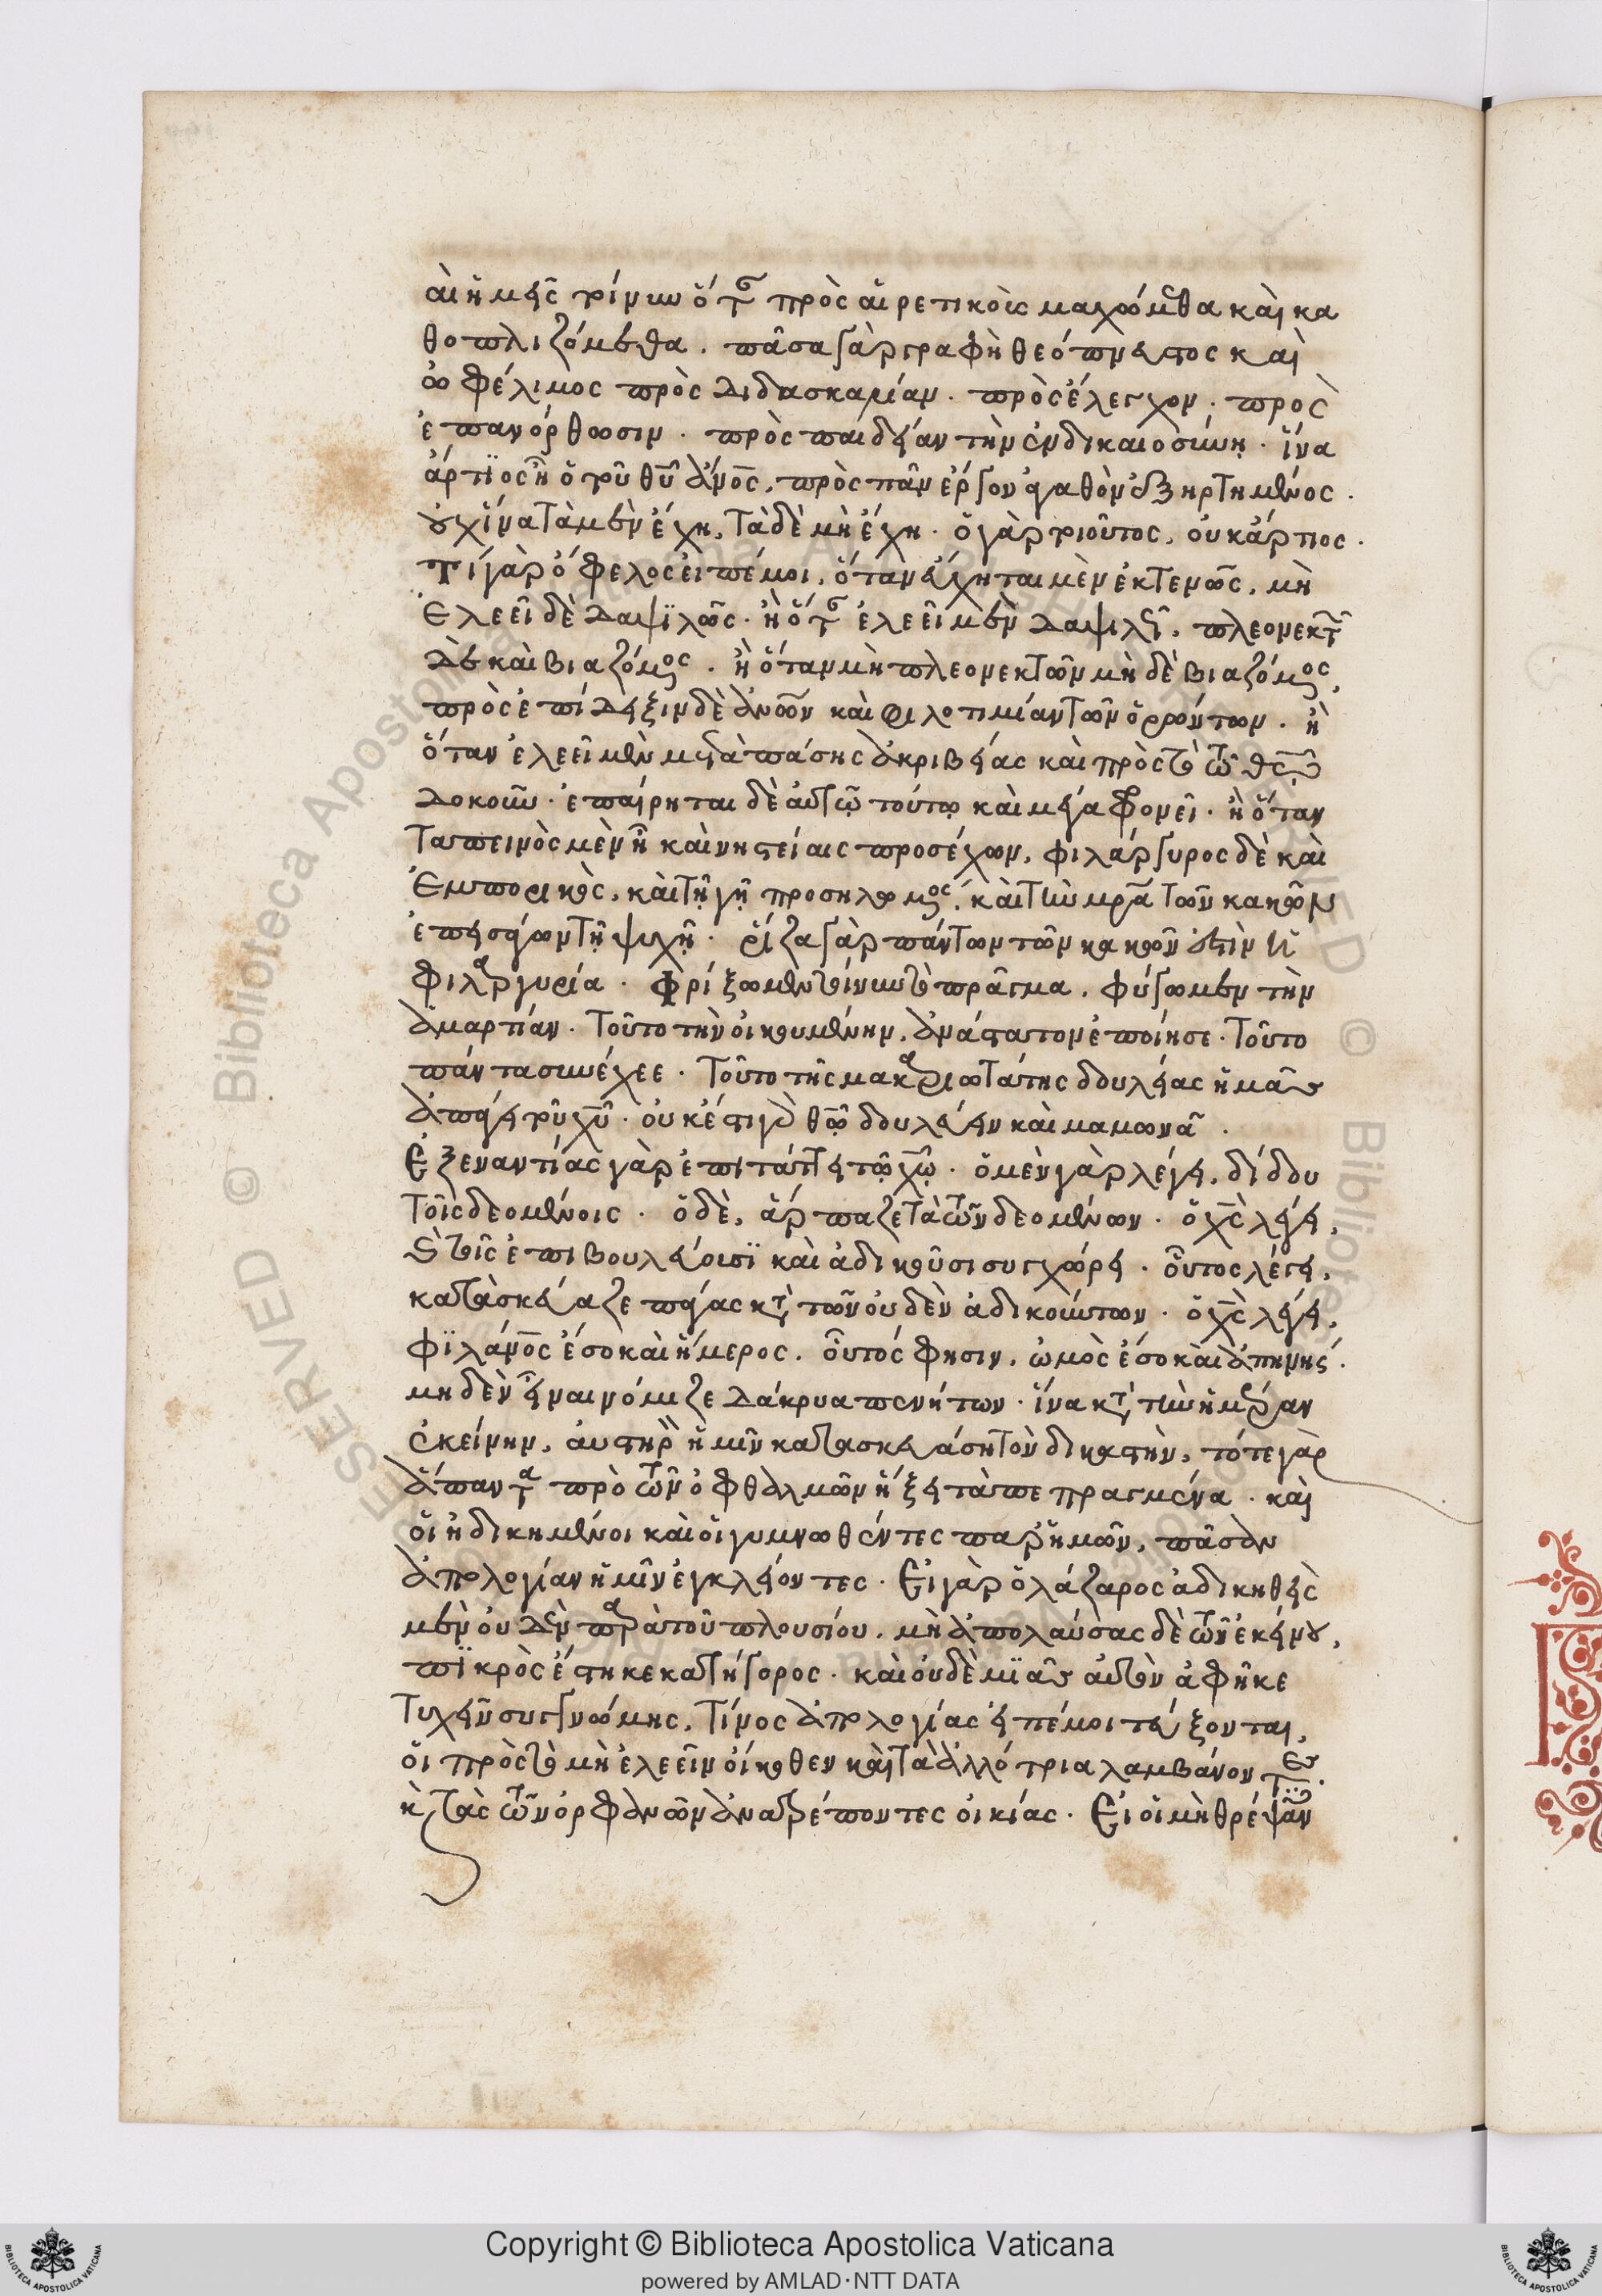 αι ἡμεῖς τοίνυν ὅταν πρὸς αἱρετικοὺς μαχώμεθα καὶ κα
θοπλιζόμεθα. πᾶσα γὰρ γραφὴ θεόπνευστος καὶ
ὠφέλιμος πρὸς διδασκαλίαν. πρὸς ἔλεγχον. πρὸς
ἐπανόρθωσιν. πρὸς παιδείαν τὴν ἐν δικαιοσύνῃ. ἵνα
ἄρτιος ᾖ ὁ τοῦ θυ ἄνος, πρὸς πᾶν ἔργον ἀγαθὸν ἐξηρτημένος.
οὐχ ἵνα τὰ μὲν ἔχῃ, τὰ δὲ μὴ ἔχῃ. ὁ γὰρ τοιοῦτος, οὐκ ἄρτιος.
τί γὰρ ὄφελος εἰπέ μοι, ὅταν εὔχηται μὲν ἐκτενῶς, μὴ
ἐλεεῖ δὲ δαψιλῶς. ἢ ὅταν ἐλεεῖ μὲν δαψιλῶς, πλεονεκτῇ
δὲ καὶ βιαζόμενος. ἢ ὅταν μὴ πλεονεκτῶν μὴ δὲ βιαζόμενος,
πρὸς ἐπίδειξιν δὲ ἀνων καὶ φιλοτιμίαν τῶν ὁρώντων. ἢ
ὅταν ἐλεεῖ μὲν μετὰ πάσης ἀκριβείας καὶ πρὸς τὸ τῶ θεῶ
δοκοῦν. ἐπαίρηται δὲ αὐτῷ τούτῳ καὶ μέγα φρονεῖ. ἢ ὅταν
ταπεινὸς μὲν ᾖ καὶ νηστείαις προσέχων, φιλάργυρος δὲ καὶ
ἐμπορικὸς, καὶ τῇ γῇ προσηλωμένος, καὶ τὴν μρα τῶν κακῶν
ἐπεισάγων τῇ ψυχῇ. ῥίζα γὰρ πάντων τῶν κακῶν ἐστὶν ἡ
φιλαργυρία. φρίξωμεν τοίνυν τὸ πρᾶγμα. φύγωμεν τὴν
ἁμαρτίαν. τοῦτο τὴν οἰκουμένην, ἀνάστατον ἐποίησε. τοῦτο
πάντα συνέχεε. τοῦτο τῆς μακαριωτάτης δουλείας ἡμᾶς
ἀπάγει τοῦ χυ. οὐκ ἔστι γὰρ θω δουλεύειν καὶ μαμωνᾶ.
Ἐξ ἐναντίας γὰρ ἐπιτάττει τῷ χω. ὁ μὲν γὰρ λέγει, δίδου
τοῖς δεομένοις. ὁ δὲ, ἅρπαζε τὰ τῶν δεομένων. ὁ χς λέγει,
τοῖς ἐπιβουλεύουσι καὶ ἀδικοῦσι συγχώρει. οὗτος λέγει,
κατασκεύαζε πάγας κατὰ τῶν οὐδὲν ἀδικούντων. ὁ χς λέγει,
φιλάνος ἔσο καὶ ἥμερος. οὗτός φησιν, ὠμὸς ἔσο καὶ ἀπηνής.
μηδὲν εἶναι νόμιζε δάκρυα πενήτων. ἵνα κατὰ τὴν ἡμέραν
ἐκείνην, αὐστηρὸν ἡμῖν κατασκευάσῃ τὸν δικαστὴν, τότε γὰρ
ἅπαντα πρὸ τῶν ὀφθαλμῶν ἥξει τὰ πεπραγμένα. καὶ
οἱ ἠδικημένοι καὶ οἱ γυμνωθέντες παρ ἡμῶν, πᾶσαν
ἀπολογίαν ἡμῖν ἐγκλείοντες. Εἰ γὰρ ὁ λάζαρος ἀδικηθεὶς
μὲν οὐδὲν παρὰ τοῦ πλουσίου. μὴ ἀπολαύσας δὲ τῶν ἐκείνου,
πικρὸς ἕστηκε κατήγορος. καὶ οὐδὲ μιᾶς αὐτὸν ἀφῆκε
τυχεῖν συγγνώμης, τίνος ἀπολογίας εἰπέ μοι τεύξονται,
οἱ πρὸς τὸ μὴ ἐλεεῖν οἴκοθεν καὶ τὰ ἀλλότρια λαμβάνοντες.
κ τὰς τῶν ὀρφανῶν ἀνατρέποντες οἰκίας. Εἰ οἱ μὴ θρέψαντες